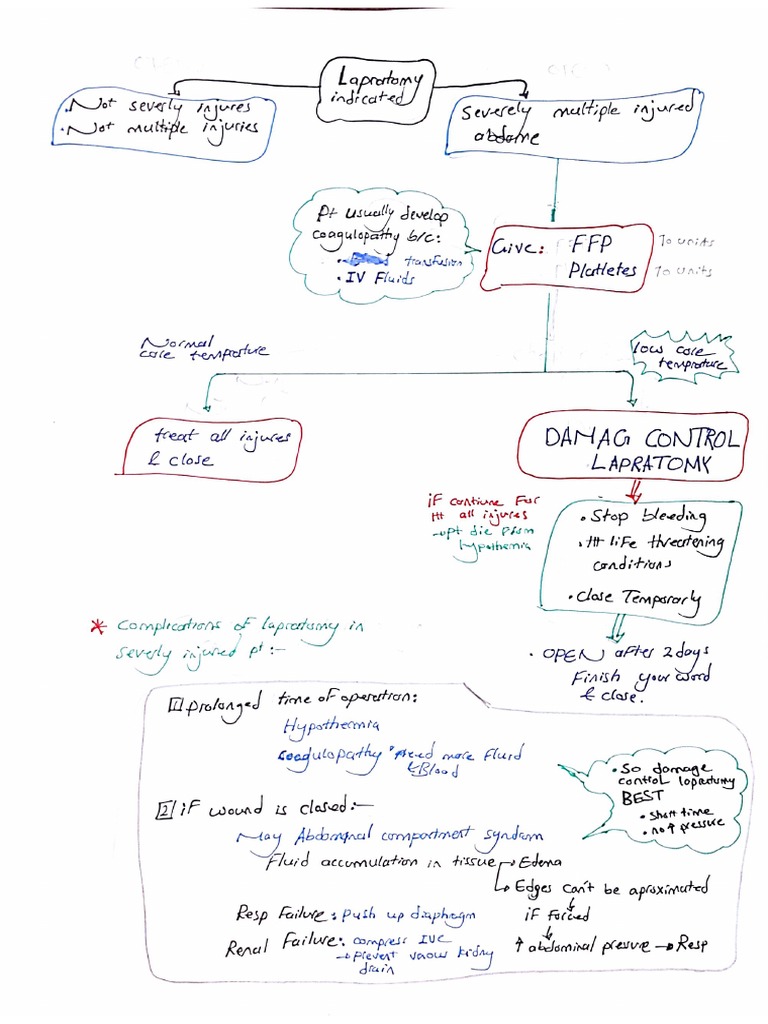 Lapratomy
indicated
• Not severly injures
• Not multiple injuries
Severely multiple injured
abdome
Pt usually develop
coagulopathy b/c:
• transfusion
• IV Fluids
Give: FFP 10 units
Platletes 10 units
Normal
core temprature
low core
temprature
treat all injures
& close
DAMAG CONTROL
LAPRATOMY
if contiune For
ttt all injures
→ pt die from
hypothermia
• Stop bleeding
• ttt life threatening
conditions
• Close Temporarly
• OPEN after 2 days
Finish your word
& close.
* Complications of lapratomy in
severly injured pt:-
1 prolonged time of operation:
Hypothermia
Coagulopathy need more fluid
& Blood
• So damage
control lapratomy
BEST
• short time
• no ↑ pressure
2 if wound is closed:-
May Abdominal compartment syndam
Fluid accumulation in tissue → Edema
→ Edges can't be aproximated
Resp Failure: Push up diaphagm
if forced
Renal Failure: compress IVC
→ prevent vnous kidny
drain
↑ abdominal presure → Resp